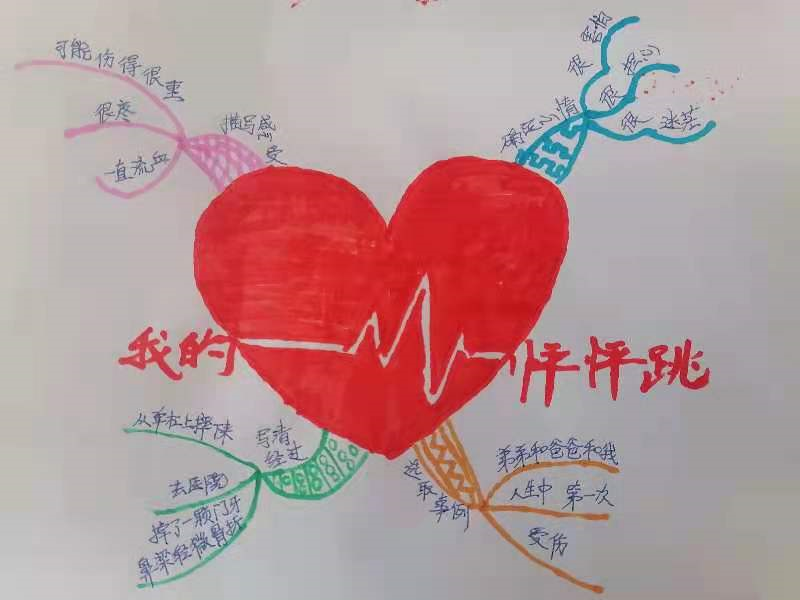 可能伤得很重
很疼
一直流血
描写感受
很害怕
很担心
很迷茫
确定心情
我的 怦怦跳
从单杠上摔下来
去医院
掉了一颗门牙
鼻梁轻微骨折
写清
经过
选取事例
弟弟和爸爸和我
人生中 第一次
受伤